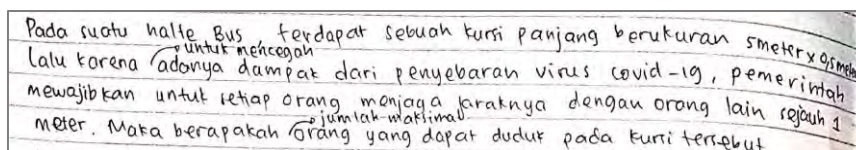 Pada suatu halte Bus, terdapat sebuah kursi panjang berukuran 5meter x 0,5 meter
untuk mencegah
Lalu karena adanya dampak dari penyebaran virus covid-19, pemerintah
mewajibkan untuk setiap orang menjaga jaraknya dengan orang lain sejauh 1
jumlah maksimal
meter. Maka berapakah orang yang dapat duduk pada kursi tersebut